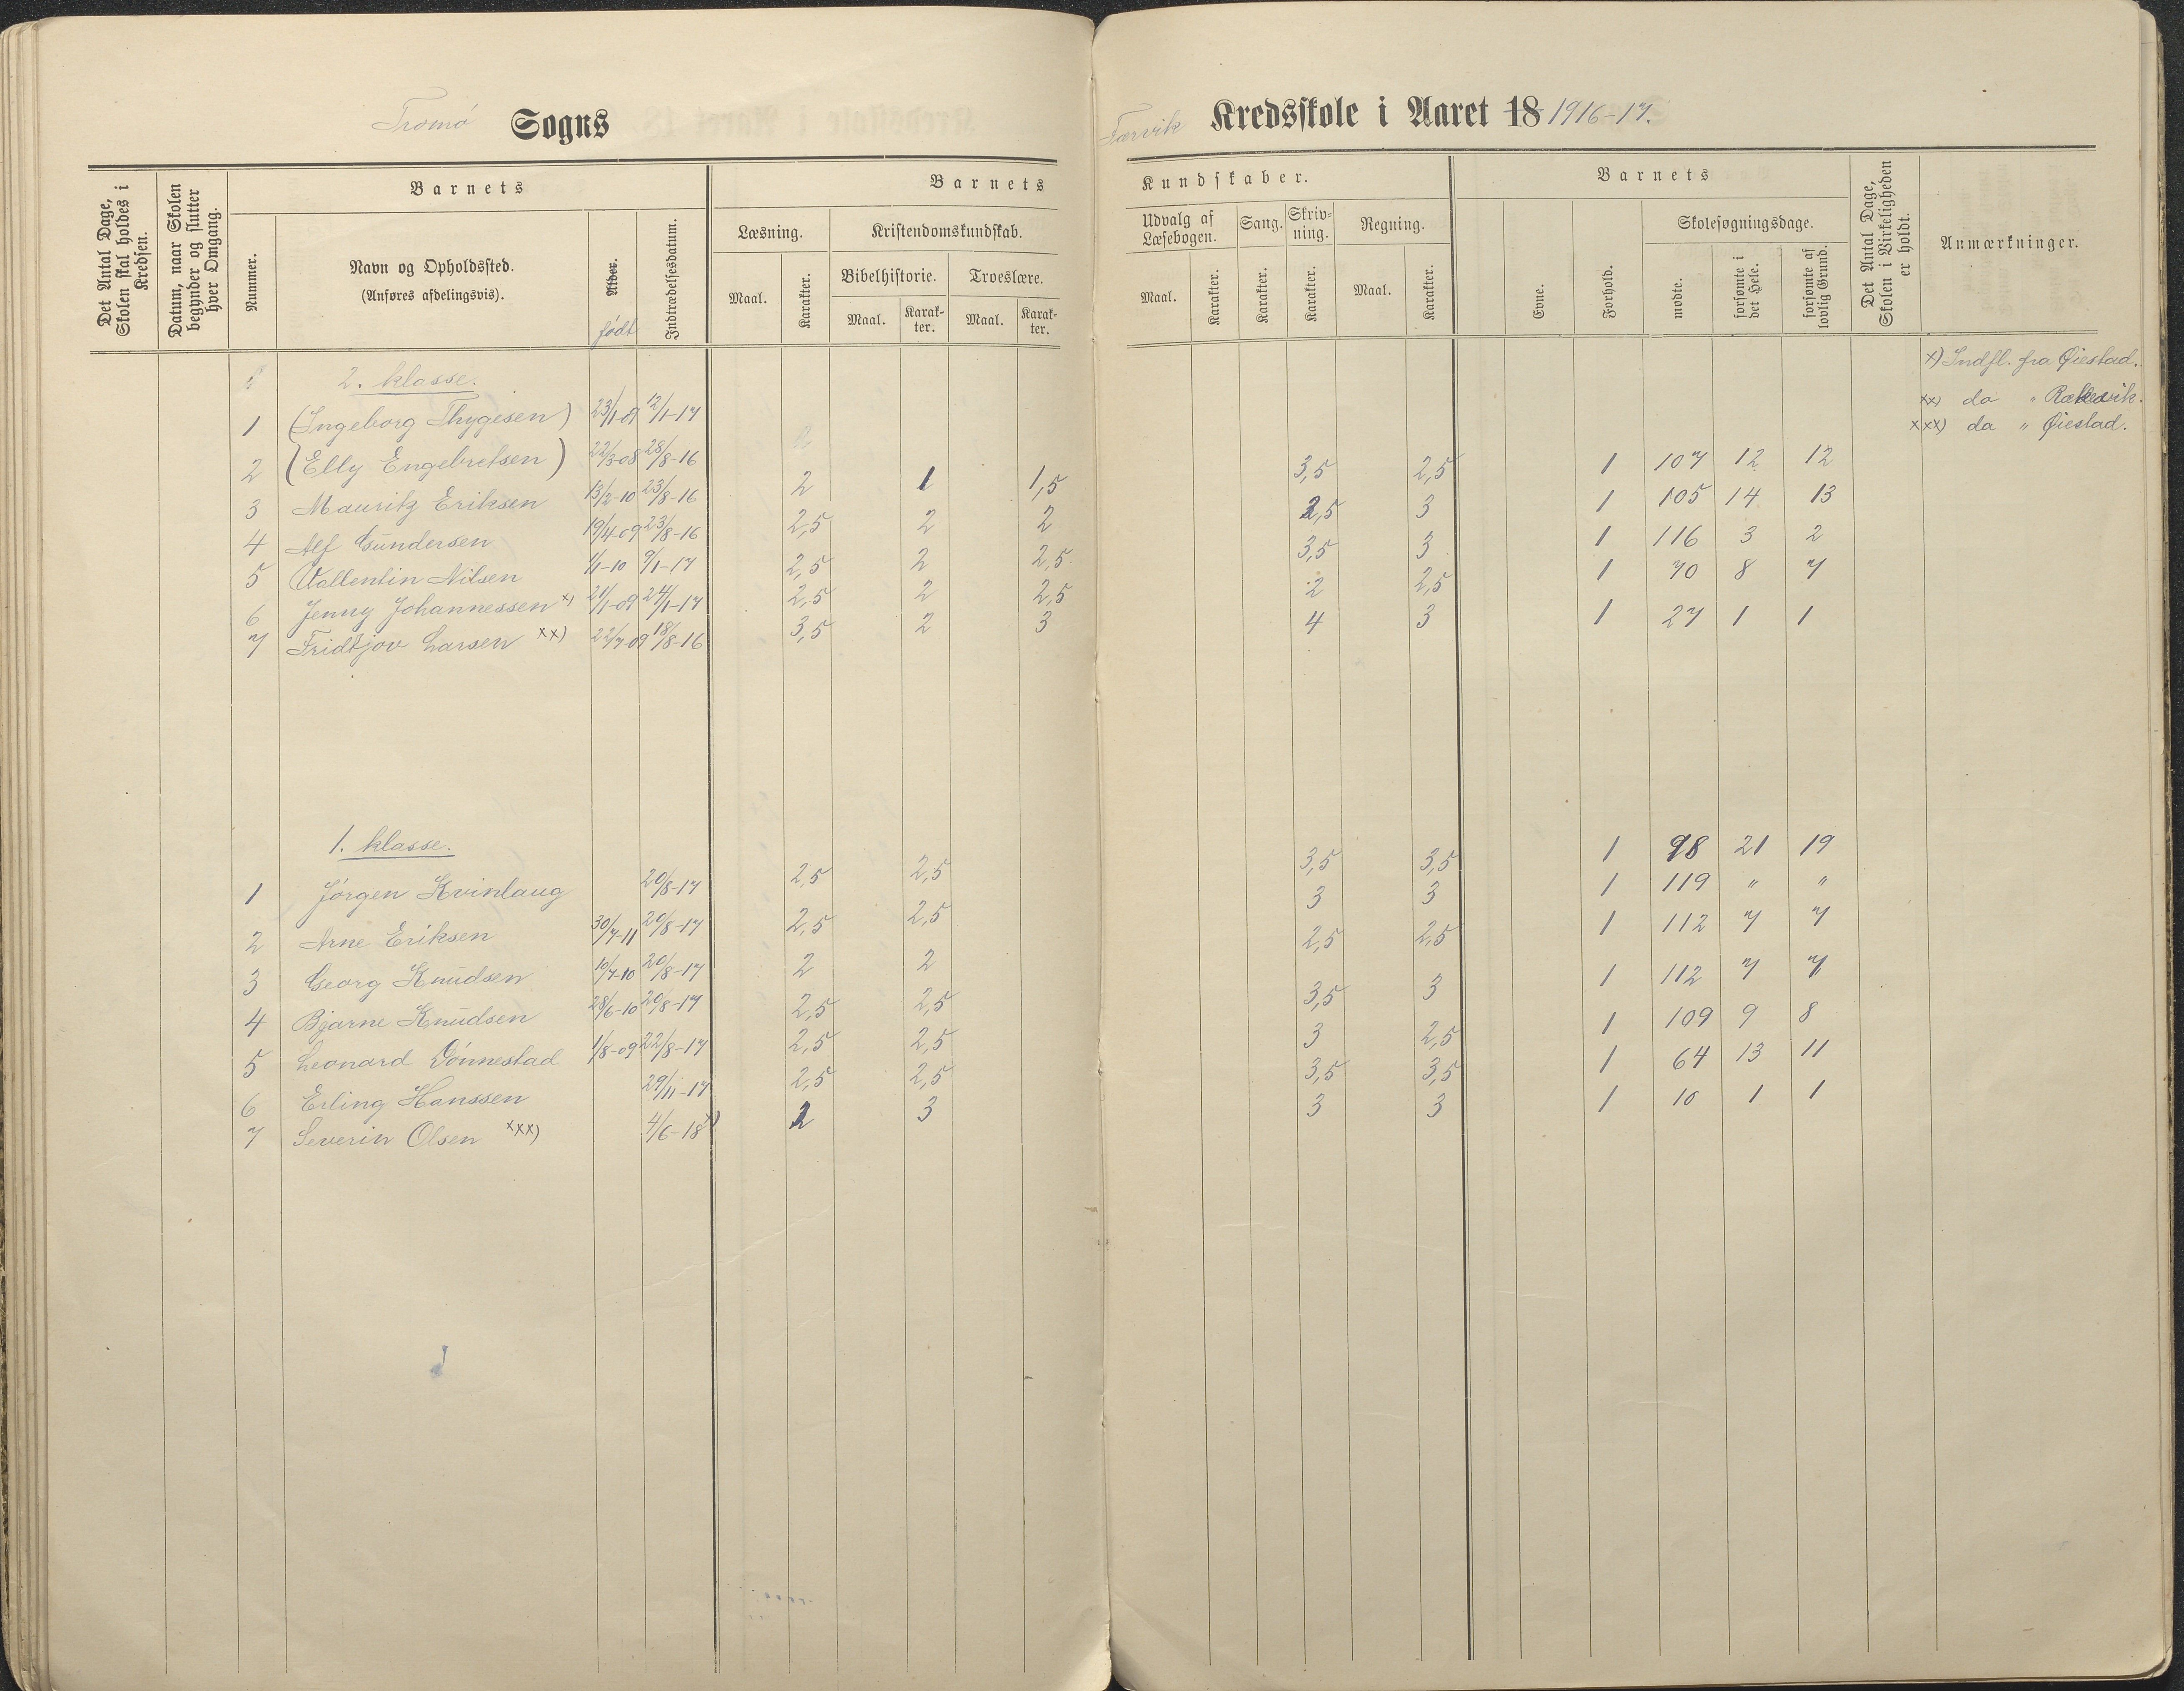 Tromø Sogns
Færvik Kredsskole i Aaret 18 1916-17.
Det Antal Dage, Skolen skal holdes i Kredsen.
Datum, naar Skolen begynder og slutter hver Omgang.
Barnets
Nummer.
Navn og Opholdssted.
(Anføres afdelingsvis).
Alder.
født
Indtrædelsesdatum.
Barnets
Læsning.
Maal.
Karakter.
Kristendomskundskab.
Bibelhistorie.
Maal.
Karakter.
Troeslære.
Maal.
Karakter.
Kundskaber.
Udvalg af Læsebogen.
Maal.
Karakter.
Sang.
Karakter.
Skrivning.
Karakter.
Regning.
Maal.
Karakter.
Barnets
Evne.
Forhold.
Skolesøgningsdage.
mødte.
forsømte i det Hele.
forsømte af lovlig Grund.
Det Antal Dage, Skolen i Virkeligheden er holdt.
Anmærkninger.
x) Indfl. fra Øiestad.
xx) do " Rækevik.
xxx) do " Øiestad.
2. klasse.
1 (Ingeborg Thygesen) 23/1-09 12/1-17
2 (Elly Engebretsen) 22/3-08 28/8-16
3 Mauritz Eriksen 13/2-10 23/8-16 2 1 1,5 3,5 2,5 1 107 12 12
4 Alf Gundersen 19/4-09 23/8-16 2,5 2 2 2,5 3 1 105 14 13
5 Vallentin Nilsen 1/1-10 9/1-17 2,5 2 2,5 3,5 3 1 116 3 2
6 Jenny Johannessen x) 21/1-09 24/1-17 2,5 2 2,5 2 2,5 1 70 8 7
7 Fridtjov Larsen xx) 22/7-09 18/8-16 3,5 2 3 4 3 1 27 1 1
1. klasse.
1 Jørgen Kvinlaug 20/8-17 2,5 2,5 3,5 3,5 1 98 21 19
2 Arne Eriksen 30/7-11 20/8-17 2,5 2,5 3 3 1 119 " "
3 Georg Knudsen 10/7-10 20/8-17 2 2 2,5 2,5 1 112 7 7
4 Bjarne Knudsen 28/6-10 20/8-17 2,5 2,5 3,5 3 1 112 7 7
5 Leonard Dønnestad 1/8-09 22/8-17 2,5 2,5 3 2,5 1 109 9 8
6 Erling Hanssen 29/11-17 2,5 2,5 3,5 3,5 1 64 13 11
7 Severin Olsen xxx) 4/6-18 2 3 3 3 1 10 1 1